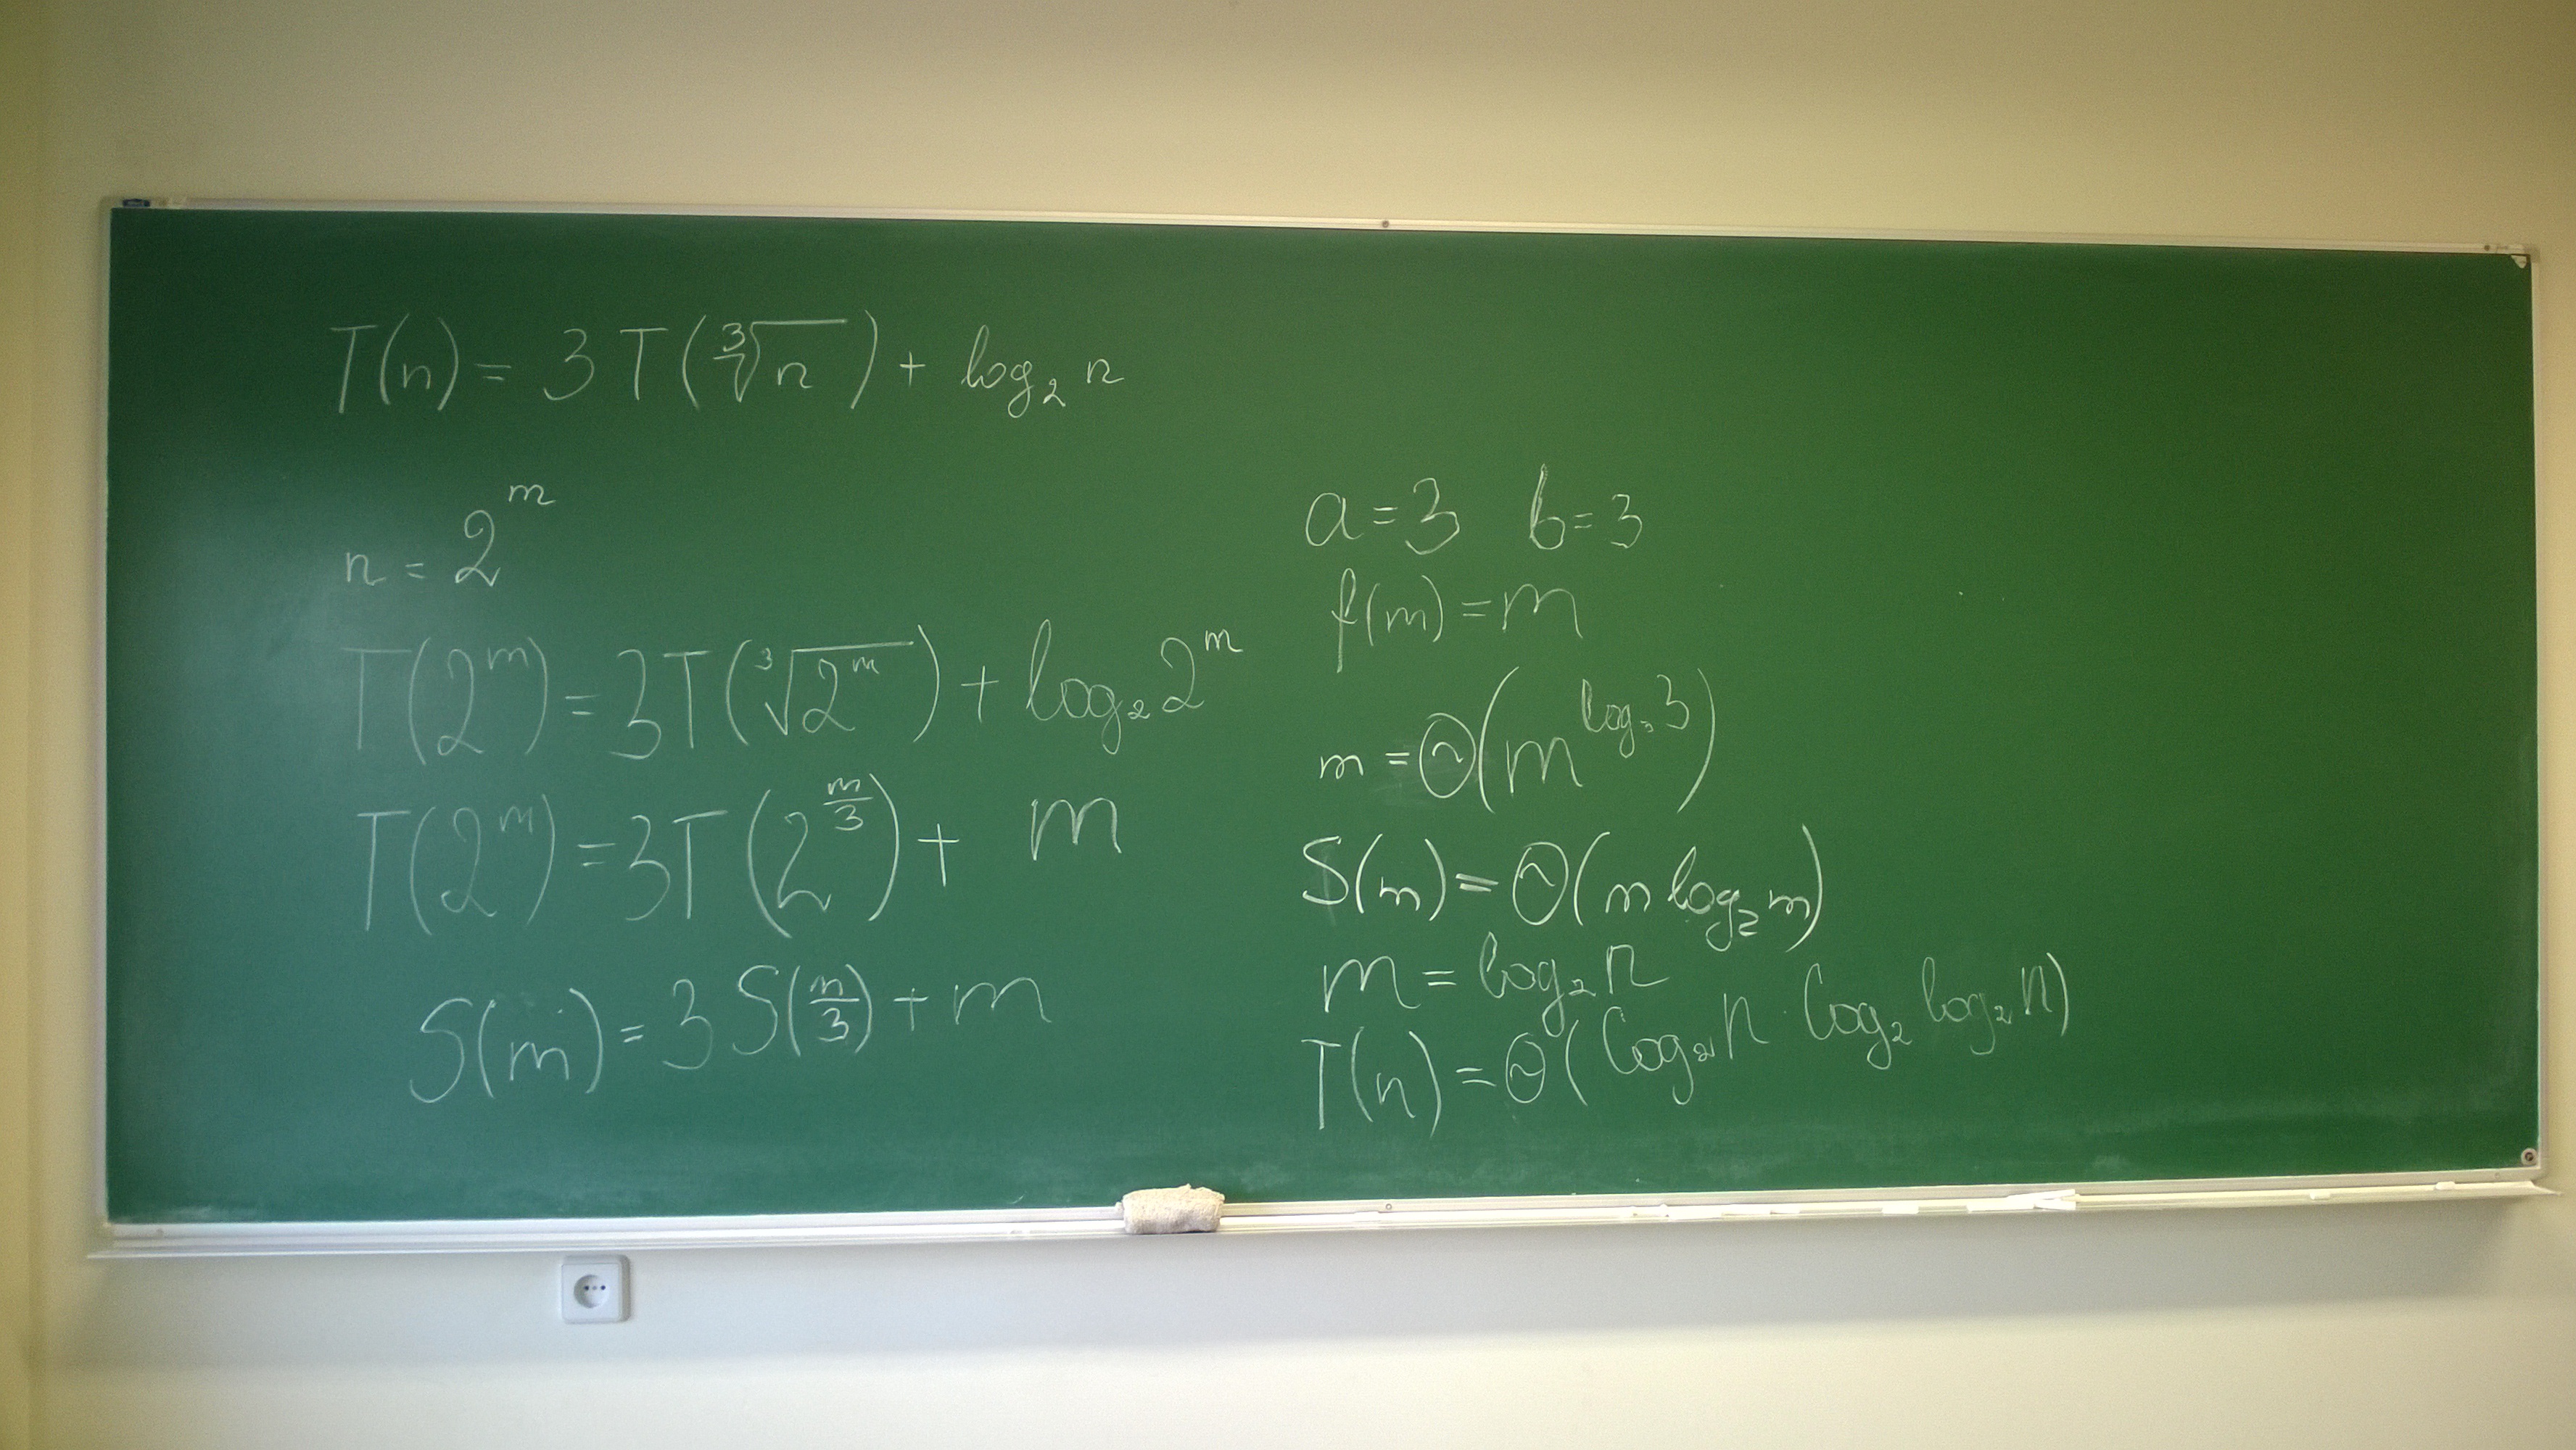 T(n) = 3T(∛n) + log₂ n
n = 2^m
T(2^m) = 3T(∛(2^m)) + log₂ 2^m
T(2^m) = 3T(2^(m/3)) + m
S(m) = 3S(m/3) + m
a = 3 b = 3
f(m) = m
m = Θ(m^(log₃ 3))
S(m) = Θ(m log₂ m)
m = log₂ n
T(n) = Θ(log₂ n · log₂ log₂ n)